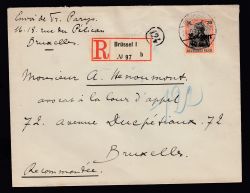 Envoi de Vr. Parys
16-18, rue du Pélican
Bruxelles.
R
Brüssel 1
№ 97 b
Monsieur A. Hanoumont,
avocat à la Cour d'appel
72, avenue Ducpétiaux, 72
Bruxelles
Recommandée.